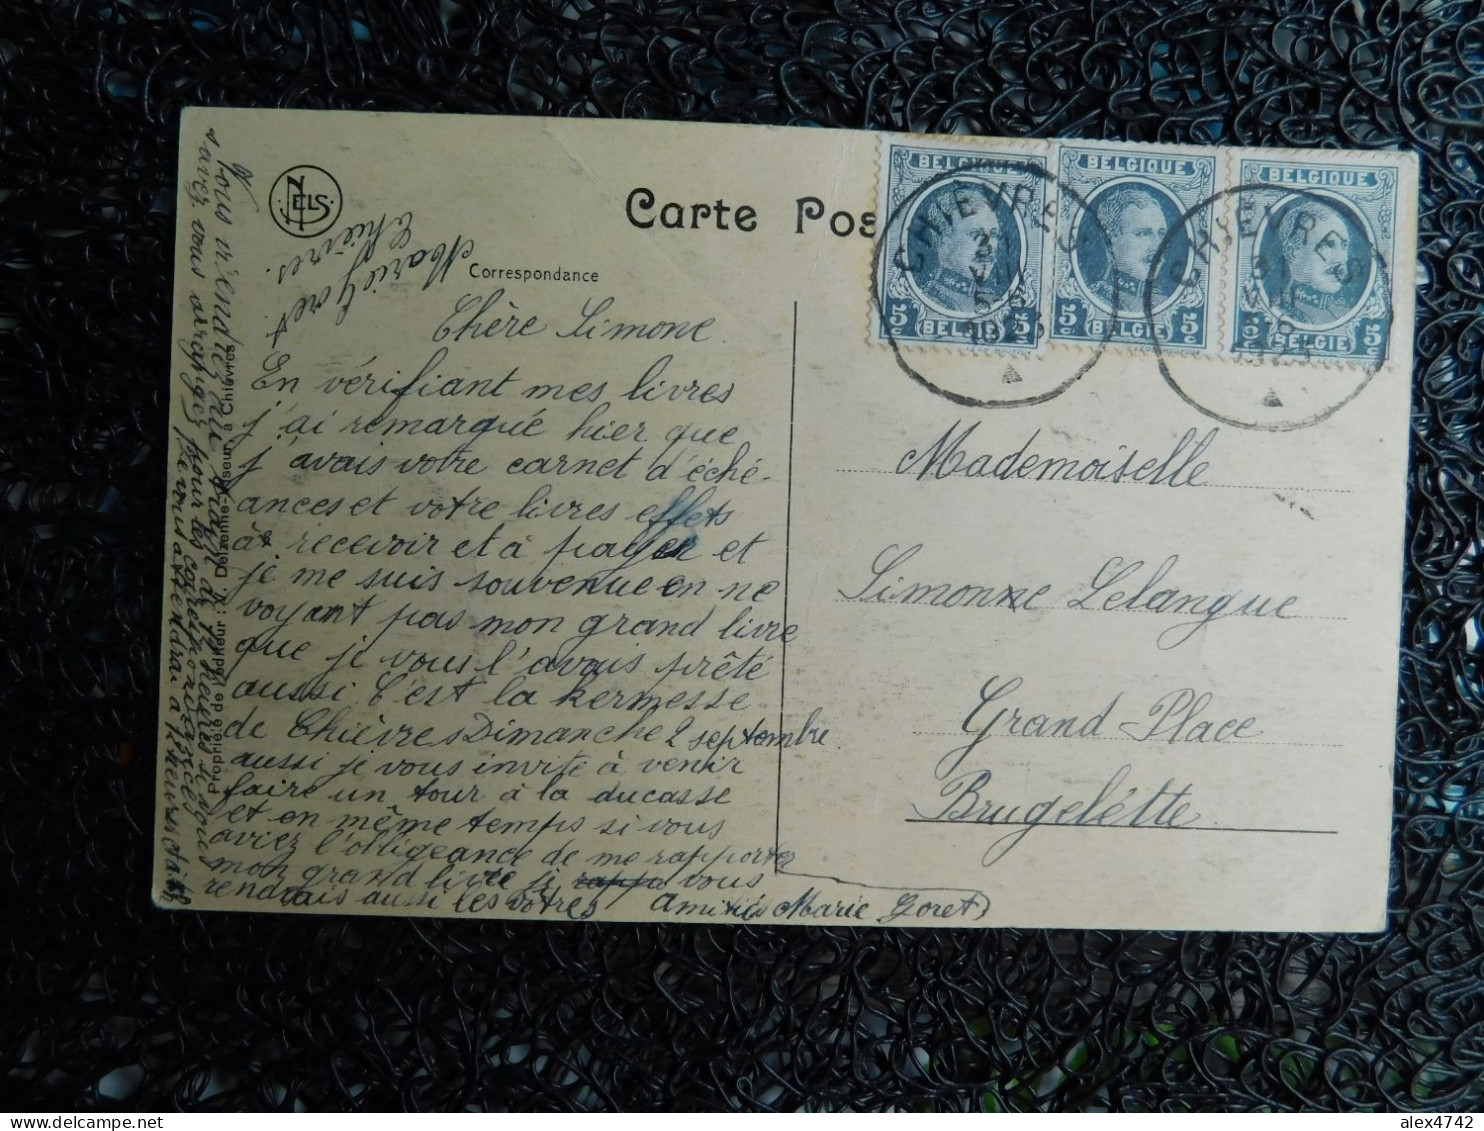 NELS
Carte Pos
Correspondance
Marie Goret
Chièvres.
Chère Simone
En vérifiant mes livres
j'ai remarqué hier que
j'avais votre carnet d'éché-
ances et votre livres effets
à recevoir et à payer et
je me suis souvenue en ne
voyant pas mon grand livre
que je vous l'avais prêté
aussi C'est la kermesse
de Chièvres Dimanche 2 septembre
aussi je vous invite à venir
faire un tour à la ducasse
et en même temps si vous
aviez l'obligeance de me rapporter
mon grand livre je rappo vous
rendrais aussi les votres Amitiés Marie Goret
Propriété de l'éditeur : V. Delzenne-Masseur, à Chièvres
savez vous arranger pour les
Je vous attendrai à
BELGIQUE
5c BELGIE 5c
BELGIQUE
5c BELGIE 5c
BELGIQUE
5c BELGIE 5c
CHIEVRES
31
VIII
1923
CHIEVRES
Mademoiselle
Simonne Lelangue
Grand-Place
Brugelétte
alex4742